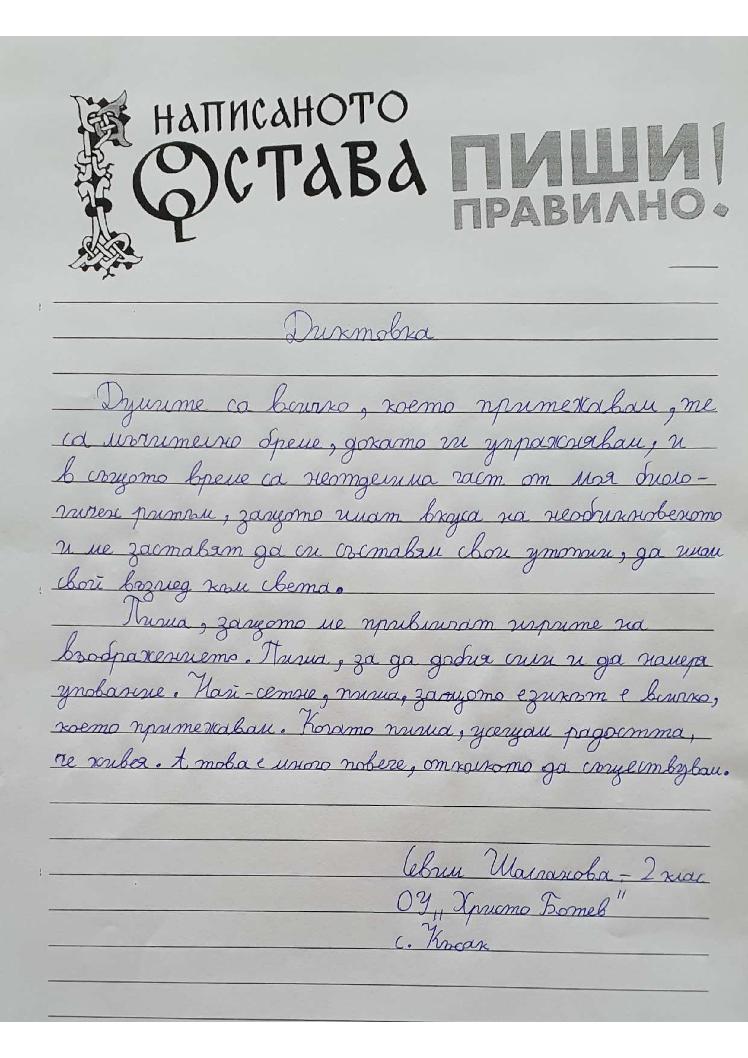 НАПИСАНОТО
ОСТАВА
ПИШИ!
ПРАВИЛНО
Диктовка
Думите са всичко, което притежавам, те
са мъчително бреме, докато ги упражнявам, и
в същото време са неотделима част от моя биоло-
гичен ритъм, защото имат вкуса на необикновеното
и ме заставят да си съставям свои утопии, да имам
свой възглед към света.
Пиша, защото ме привличат игрите на
въображението. Пиша, за да добия сили и да намеря
упование. Най-сетне, пиша, защото езикът е всичко,
което притежавам. Когато пиша, усещам радостта,
че живея. А това е много повече, отколкото да съществувам.
Севги Шалганова - 2 клас
ОУ „Христо Ботев"
с. Късак